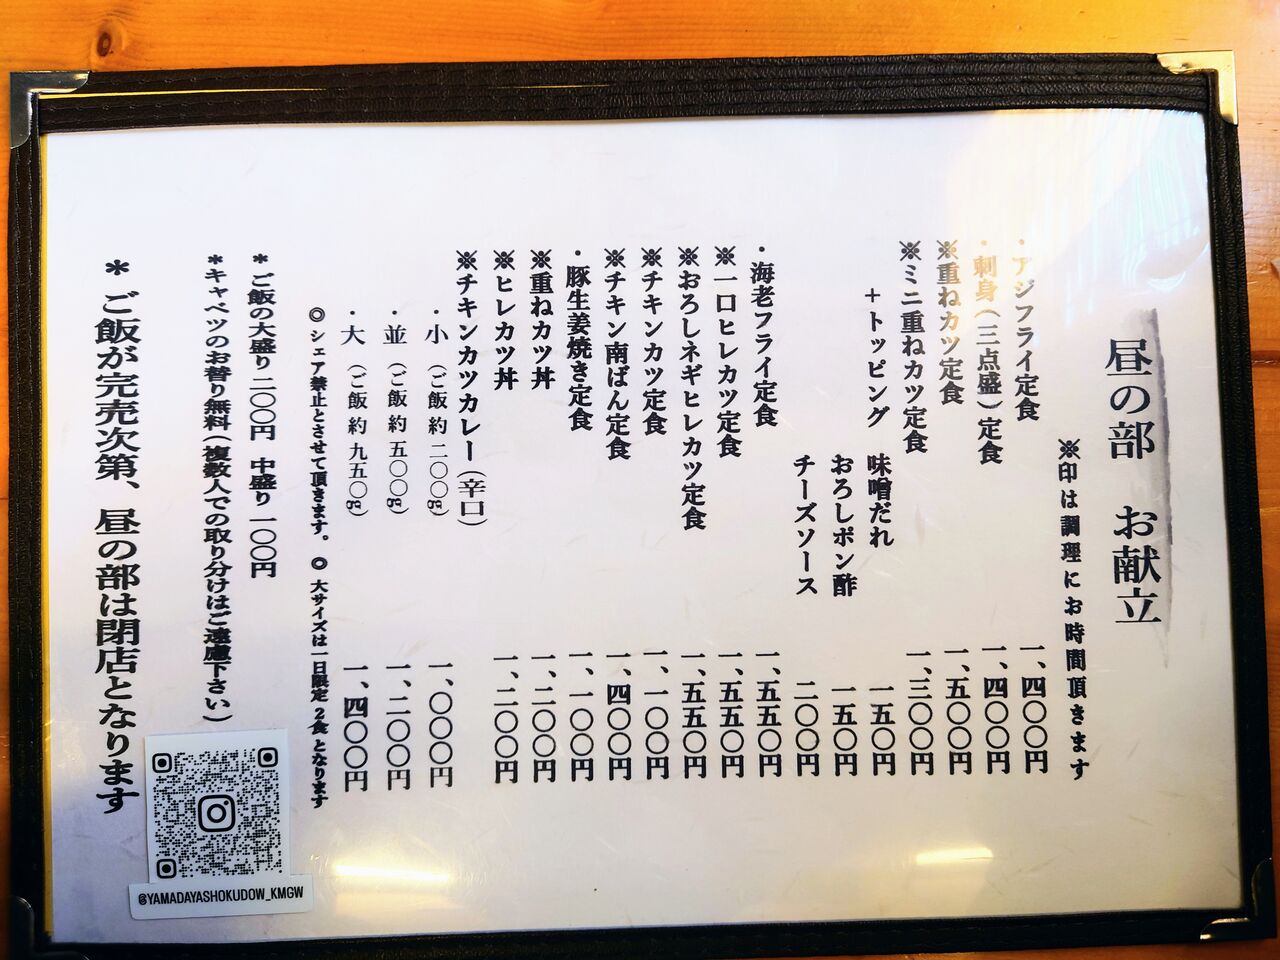 昼の部　お献立
※印は調理にお時間頂きます
・アジフライ定食　一、四〇〇円
・刺身（三点盛）定食　一、四〇〇円
※重ねカツ定食　一、五〇〇円
※ミニ重ねカツ定食　一、三〇〇円
＋トッピング　味噌だれ　一五〇円
おろしポン酢　一五〇円
チーズソース　二〇〇円
・海老フライ定食　一、五五〇円
※一口ヒレカツ定食　一、五五〇円
※おろしネギヒレカツ定食　一、五五〇円
※チキンカツ定食　一、一〇〇円
※チキン南ばん定食　一、四〇〇円
・豚生姜焼き定食　一、一〇〇円
※重ねカツ丼　一、二〇〇円
※ヒレカツ丼　一、二〇〇円
※チキンカツカレー（辛口）
・小（ご飯 約 二〇〇g）　一、〇〇〇円
・並（ご飯 約 五〇〇g）　一、二〇〇円
・大（ご飯 約 九五〇g）　一、四〇〇円
◎シェア禁止とさせて頂きます。◎大サイズは一日限定 2食 となります
＊ご飯の大盛り 二〇〇円　中盛り 一〇〇円
＊キャベツのお替り無料（複数人での取り分けはご遠慮下さい）
＊ご飯が完売次第、昼の部は閉店となります
@YAMADAYASHOKUDOW_KMGW